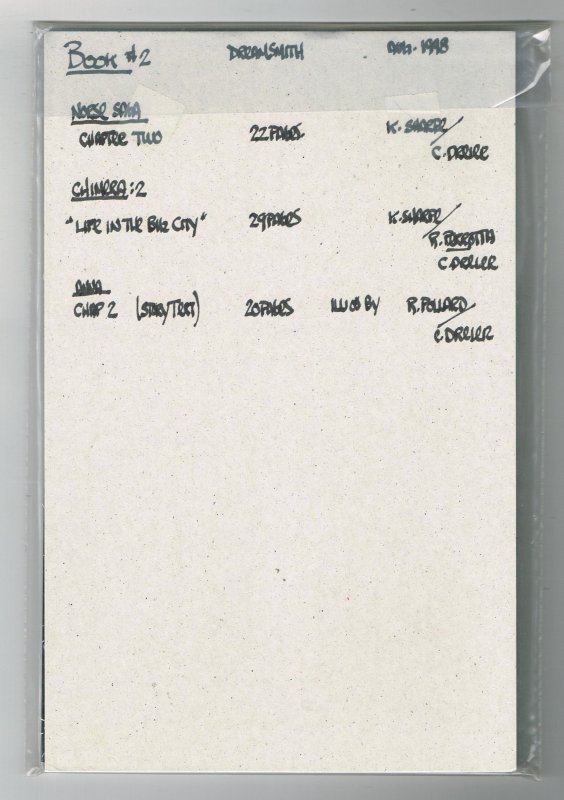 Book #2 DREAMSMITH 1998
NORSE SAGA
CHAPTER TWO 22 PAGES K. SHARPE/
C. DREIER
CHIMERA:2
"LIFE IN THE BIG CITY" 29 PAGES K. SHARPE/
R.
C. DREIER
ANNA
CHAP 2 (STORY TEXT) 20 PAGES ILLUS BY R. POLLARD/
C. DREIER